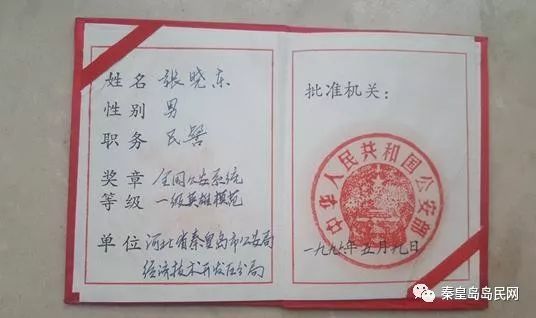 姓名 张晓东
性别 男
职务 民警
奖章 全国公安系统
等级 一级英雄模范
单位 河北省秦皇岛市公安局
经济技术开发区分局
批准机关：
中华人民共和国公安部
一九九六年五月九日
秦皇岛岛民网